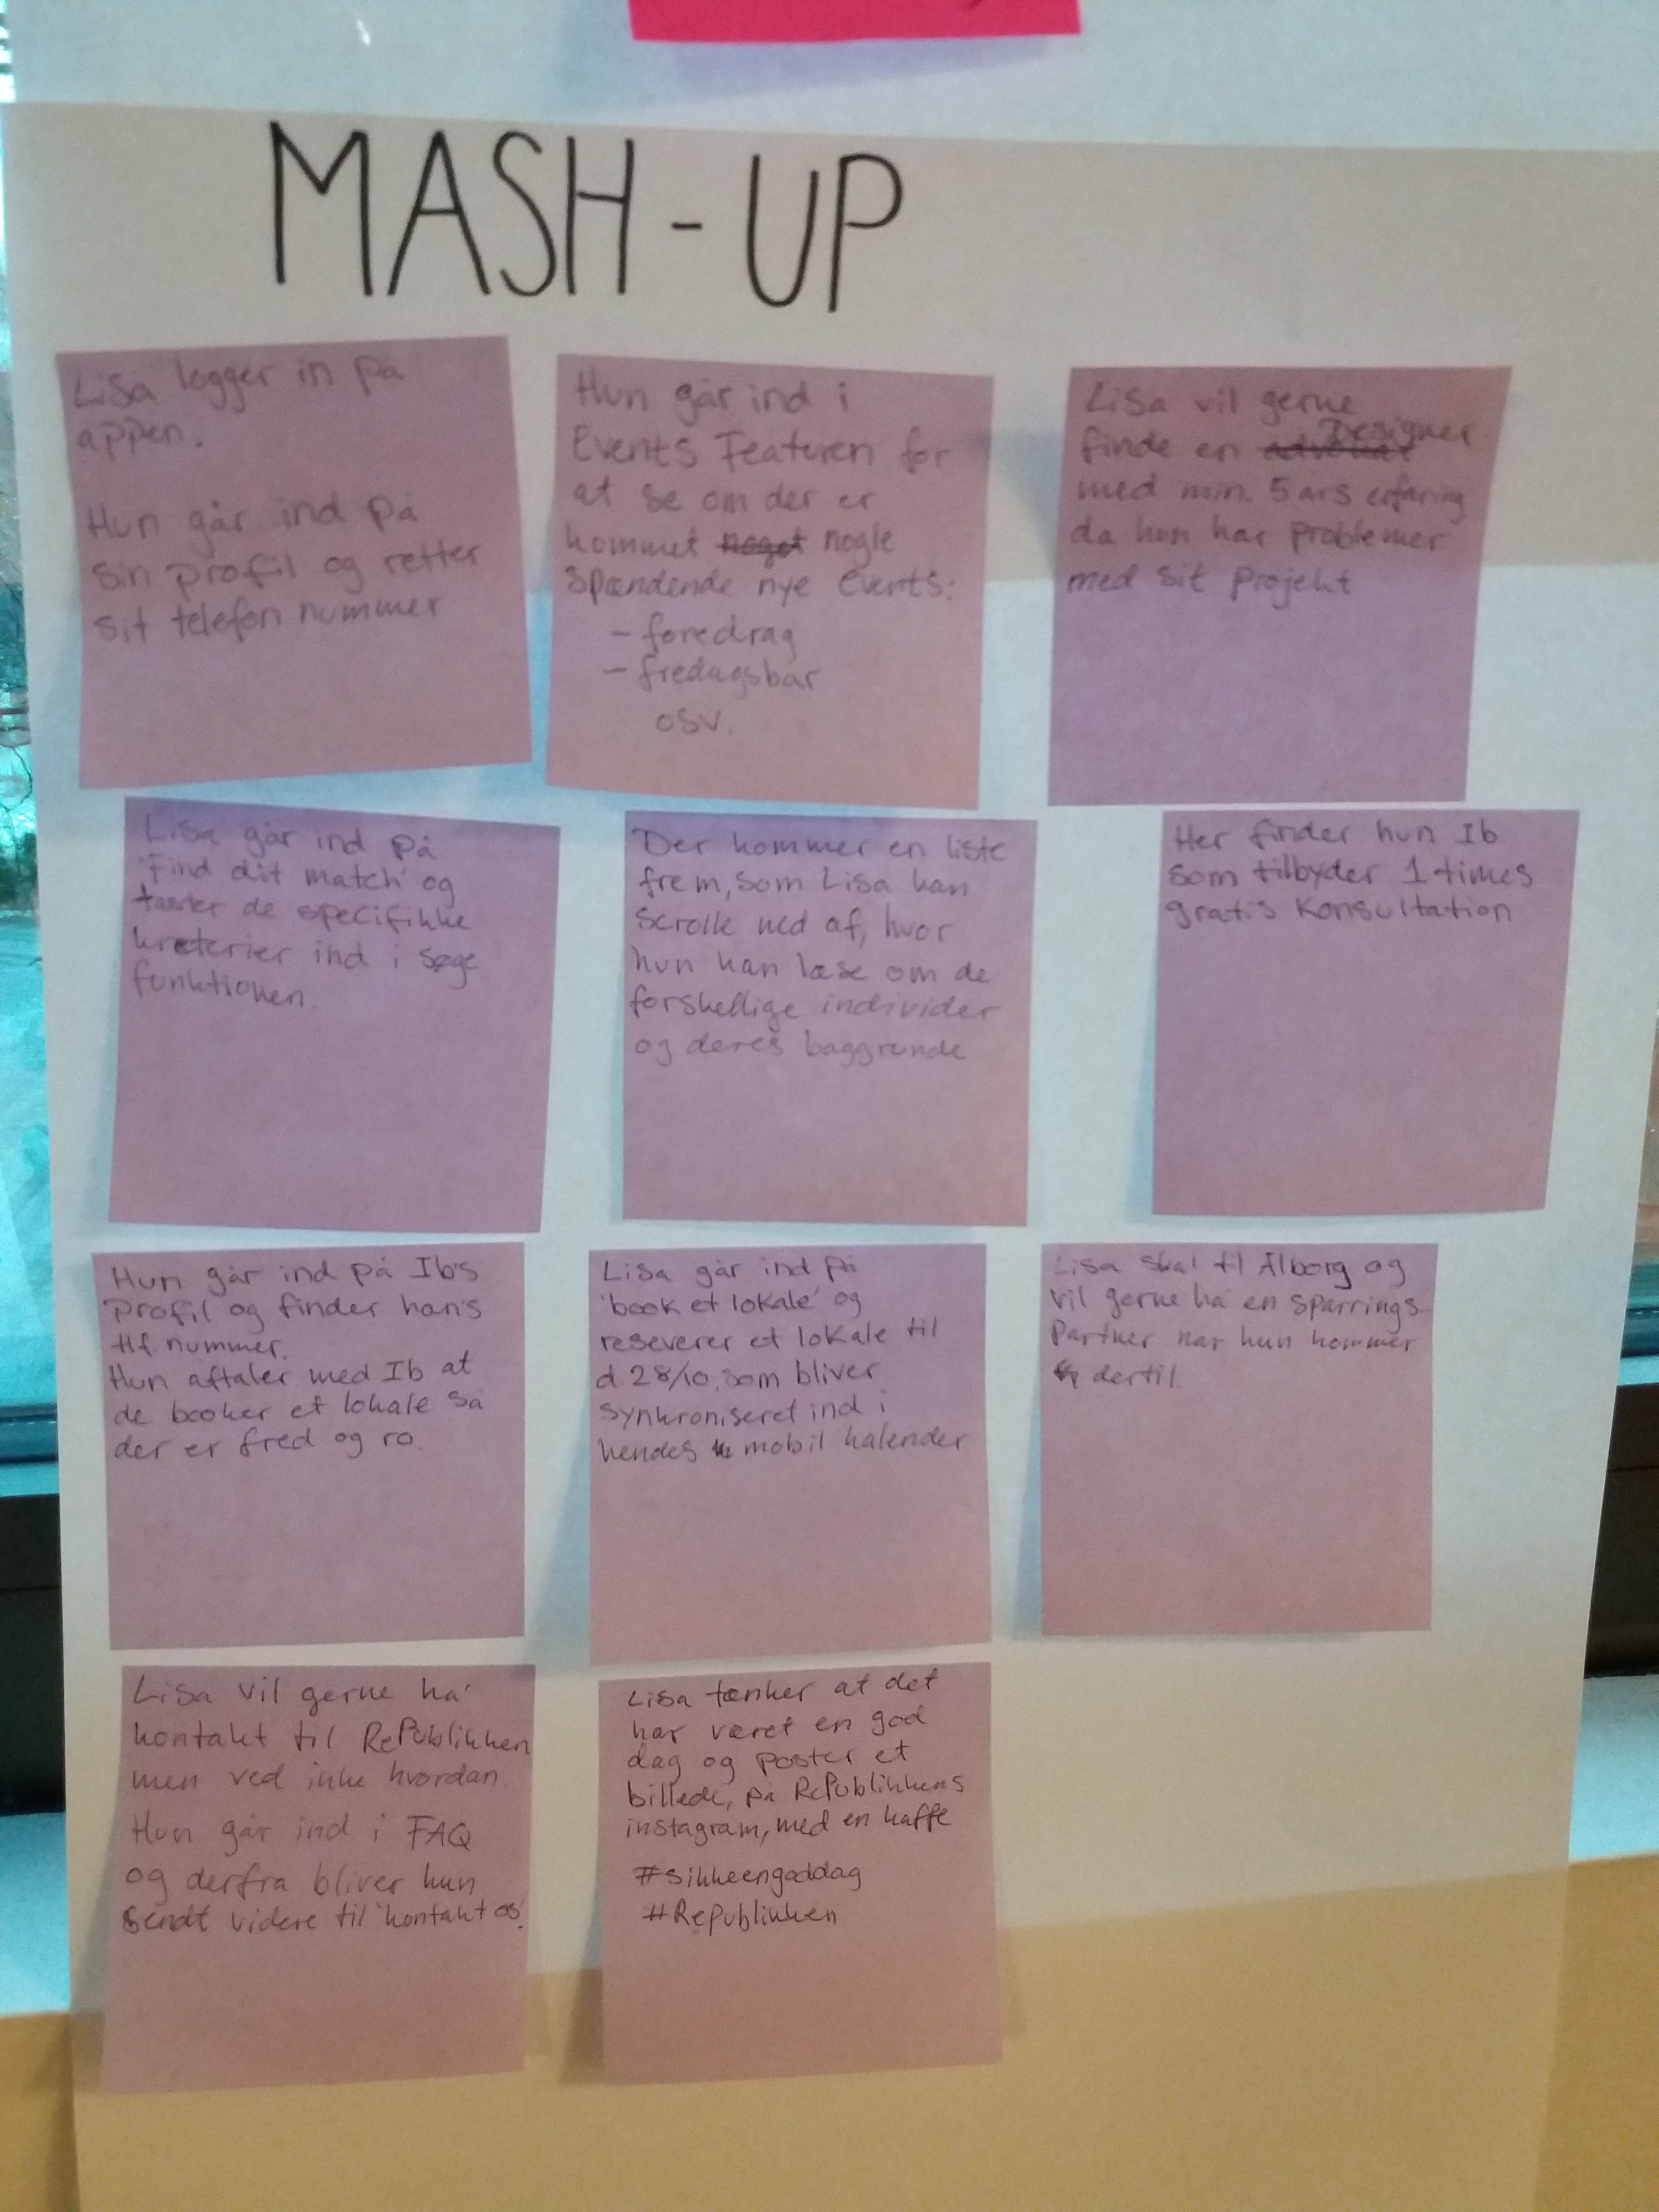 MASH-UP
Lisa logger in på
appen.
Hun går ind på
sin profil og retter
sit telefon nummer
Hun går ind i
Events Featuren for
at se om der er
kommet noget nogle
spændende nye events:
- foredrag
- fredagsbar
osv.
Lisa vil gerne
finde en advokat Designer
med min. 5 års erfaring
da hun har problemer
med sit projekt
Lisa går ind på
'Find dit match' og
taster de specifikke
kreterier ind i søge
funktionen.
Der kommer en liste
frem, som Lisa kan
scrolle ned af, hvor
hun kan læse om de
forskellige individer
og deres baggrunde
Her finder hun Ib
som tilbyder 1 times
gratis Konsultation
Hun går ind på Ib's
profil og finder han's
tlf. nummer.
Hun aftaler med Ib at
de booker et lokale så
der er fred og ro.
Lisa går ind på
'book et lokale' og
reseverer et lokale til
d 28/10, som bliver
synkroniseret ind i
hendes mobil kalender
Lisa skal til Ålborg og
vil gerne ha en sparrings-
Partner når hun kommer
dertil.
Lisa vil gerne ha'
kontakt til RePublikken
men ved ikke hvordan.
Hun går ind i FAQ
og derfra bliver hun
sendt videre til 'kontakt os'.
Lisa tænker at det
har været en god
dag og poster et
billede, på RePublikkens
instagram, med en kaffe
#sikkeengoddag
#Republikken